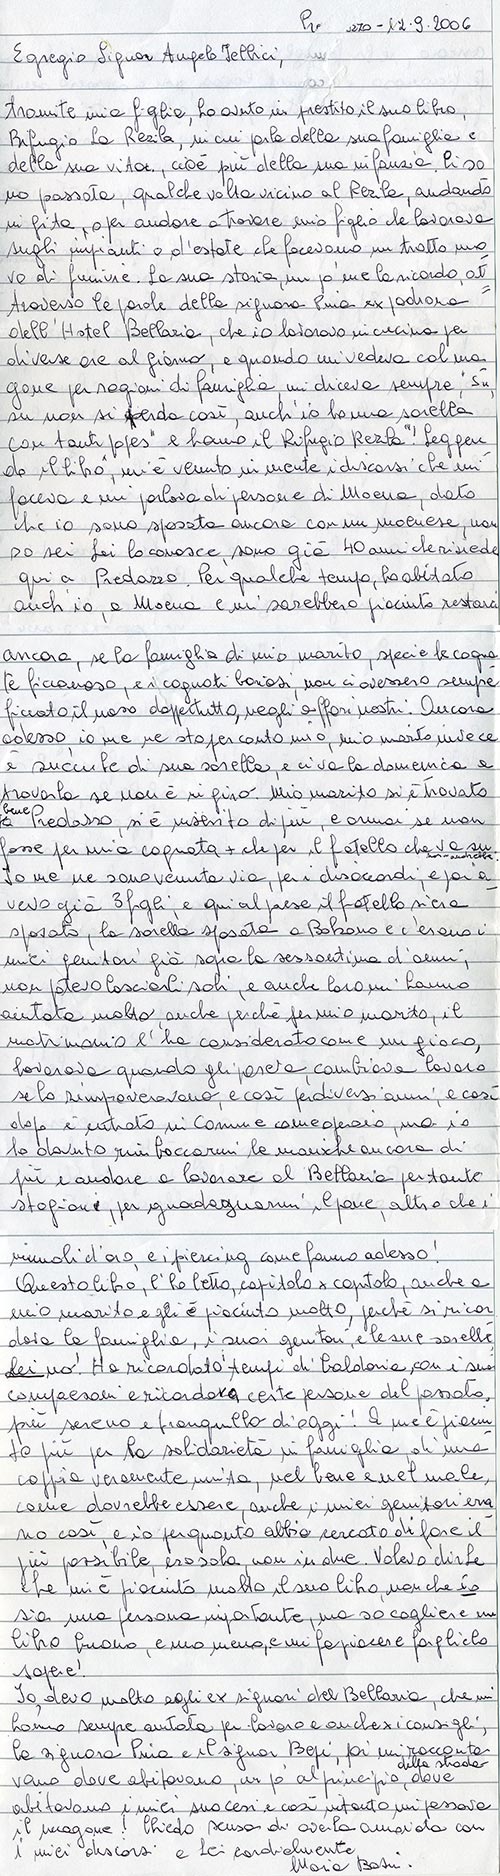 Pr   azzo - 12.9.2006
Egregio Signor Angelo Jellici,
tramite mia figlia, ho avuto in prestito il suo libro,
Rifugio La Rezila, in cui parla della sua famiglia e
della sua vita, cioè più della sua infanzia. Ci so
no passata, qualche volta vicino al Rezila, andando
in gita, o per andare a trovare mio figlio che lavorava
sugli impianti o d'estate che facevano un tratto nuo
vo di funivie. La sua storia, un pò me la ricordo, at
traverso le parole della signora Pina ex padrona
dell'Hotel Bellaria, che io lavoravo in cucina per
diverse ore al giorno, e quando mi vedeva col ma
gone per ragioni di famiglia, mi diceva sempre, "Sù,
su non si perda così, anch'io ho una sorella
con tanti popes" e hanno il Rifugio Rezila"! Leggen
do il libro, mi è venuto in mente i discorsi che mi
faceva e mi parlava di persone di Moena, dato
che io sono sposata ancora con un moenese, non
so sei Lei lo conosce, sono già 40 anni che risiede
qui a Predazzo. Per qualche tempo, ho abitato
anch'io, a Moena e mi sarebbero piaciuto restarci
ancora, se la famiglia di mio marito, specie le cogna
te ficcanaso, e i cognati boriosi, non ci avessero sempre
ficcato il naso dappertutto, negli affari nostri. Ancora
adesso io me ne sto per conto mio, mio marito invece
è succube di sua sorella, e ci va la domenica a
trovarla se non è in giro. Mio marito si è trovato
bene
a Predazzo, si è inserito di più, e ormai se non
fosse per mia cognata + che per il fratello che va su.
non andrebbe
Io me ne sono venuta via, per i disaccordi, e poi a
vevo già 3 figli, e qui al paese il fratello s'era
sposato, la sorella sposata a Bolzano e c'erano i
miei genitori già sopra la sessantina d'anni,
non potevo lasciarli soli, e anche loro mi hanno
aiutata molto, anche perchè per mio marito, il
matrimonio l'ha considerato come un gioco,
lavorava quando gli pareva, cambiava lavoro
se lo rimproveravano, e così per diversi anni, e così
dopo è entrato in Comune come operaio, ma io
ho dovuto rimboccarmi le maniche ancora di
più e andare a lavorare al Bellaria per tante
stagioni, per guadagnarmi il pane, altro che i
ninnoli d'oro, e i piercing come fanno adesso!
Questo libro, l'ho letto, capitolo x capitolo, anche a
mio marito e gli è piaciuto molto, perchè si ricor
dava la famiglia, i suoi genitori e le sue sorelle
Lei no! Ha ricordato i tempi di baldoria, con i suoi
compaesani e ricordava certe persone del passato,
più sereno e tranquillo di oggi! A me è piaciu
to più per la solidarietà in famiglia, di una
coppia veramente unita, nel bene e nel male,
come dovrebbe essere, anche i miei genitori era
no così, e io per quanto abbia cercato di fare il
più possibile, ero sola, non in due. Volevo dirLe
che mi è piaciuto molto il suo libro, non che io
sia una persona importante, ma so cogliere un
libro buono, e uno meno, e mi fa piacere farglielo
sapere!
Io, devo molto agli ex signori del Bellaria, che mi
hanno sempre aiutata per lavoro e anche x i consigli,
la signora Pina e il signor Bepi, poi mi racconta
della strada
vano dove abitavano, un pò al principio, dove
abitavano i miei suoceri e così intanto mi passava
il magone! Chiedo scusa di averla annoiata con
i miei discorsi e Lei cordialmente
Maria Bosin.